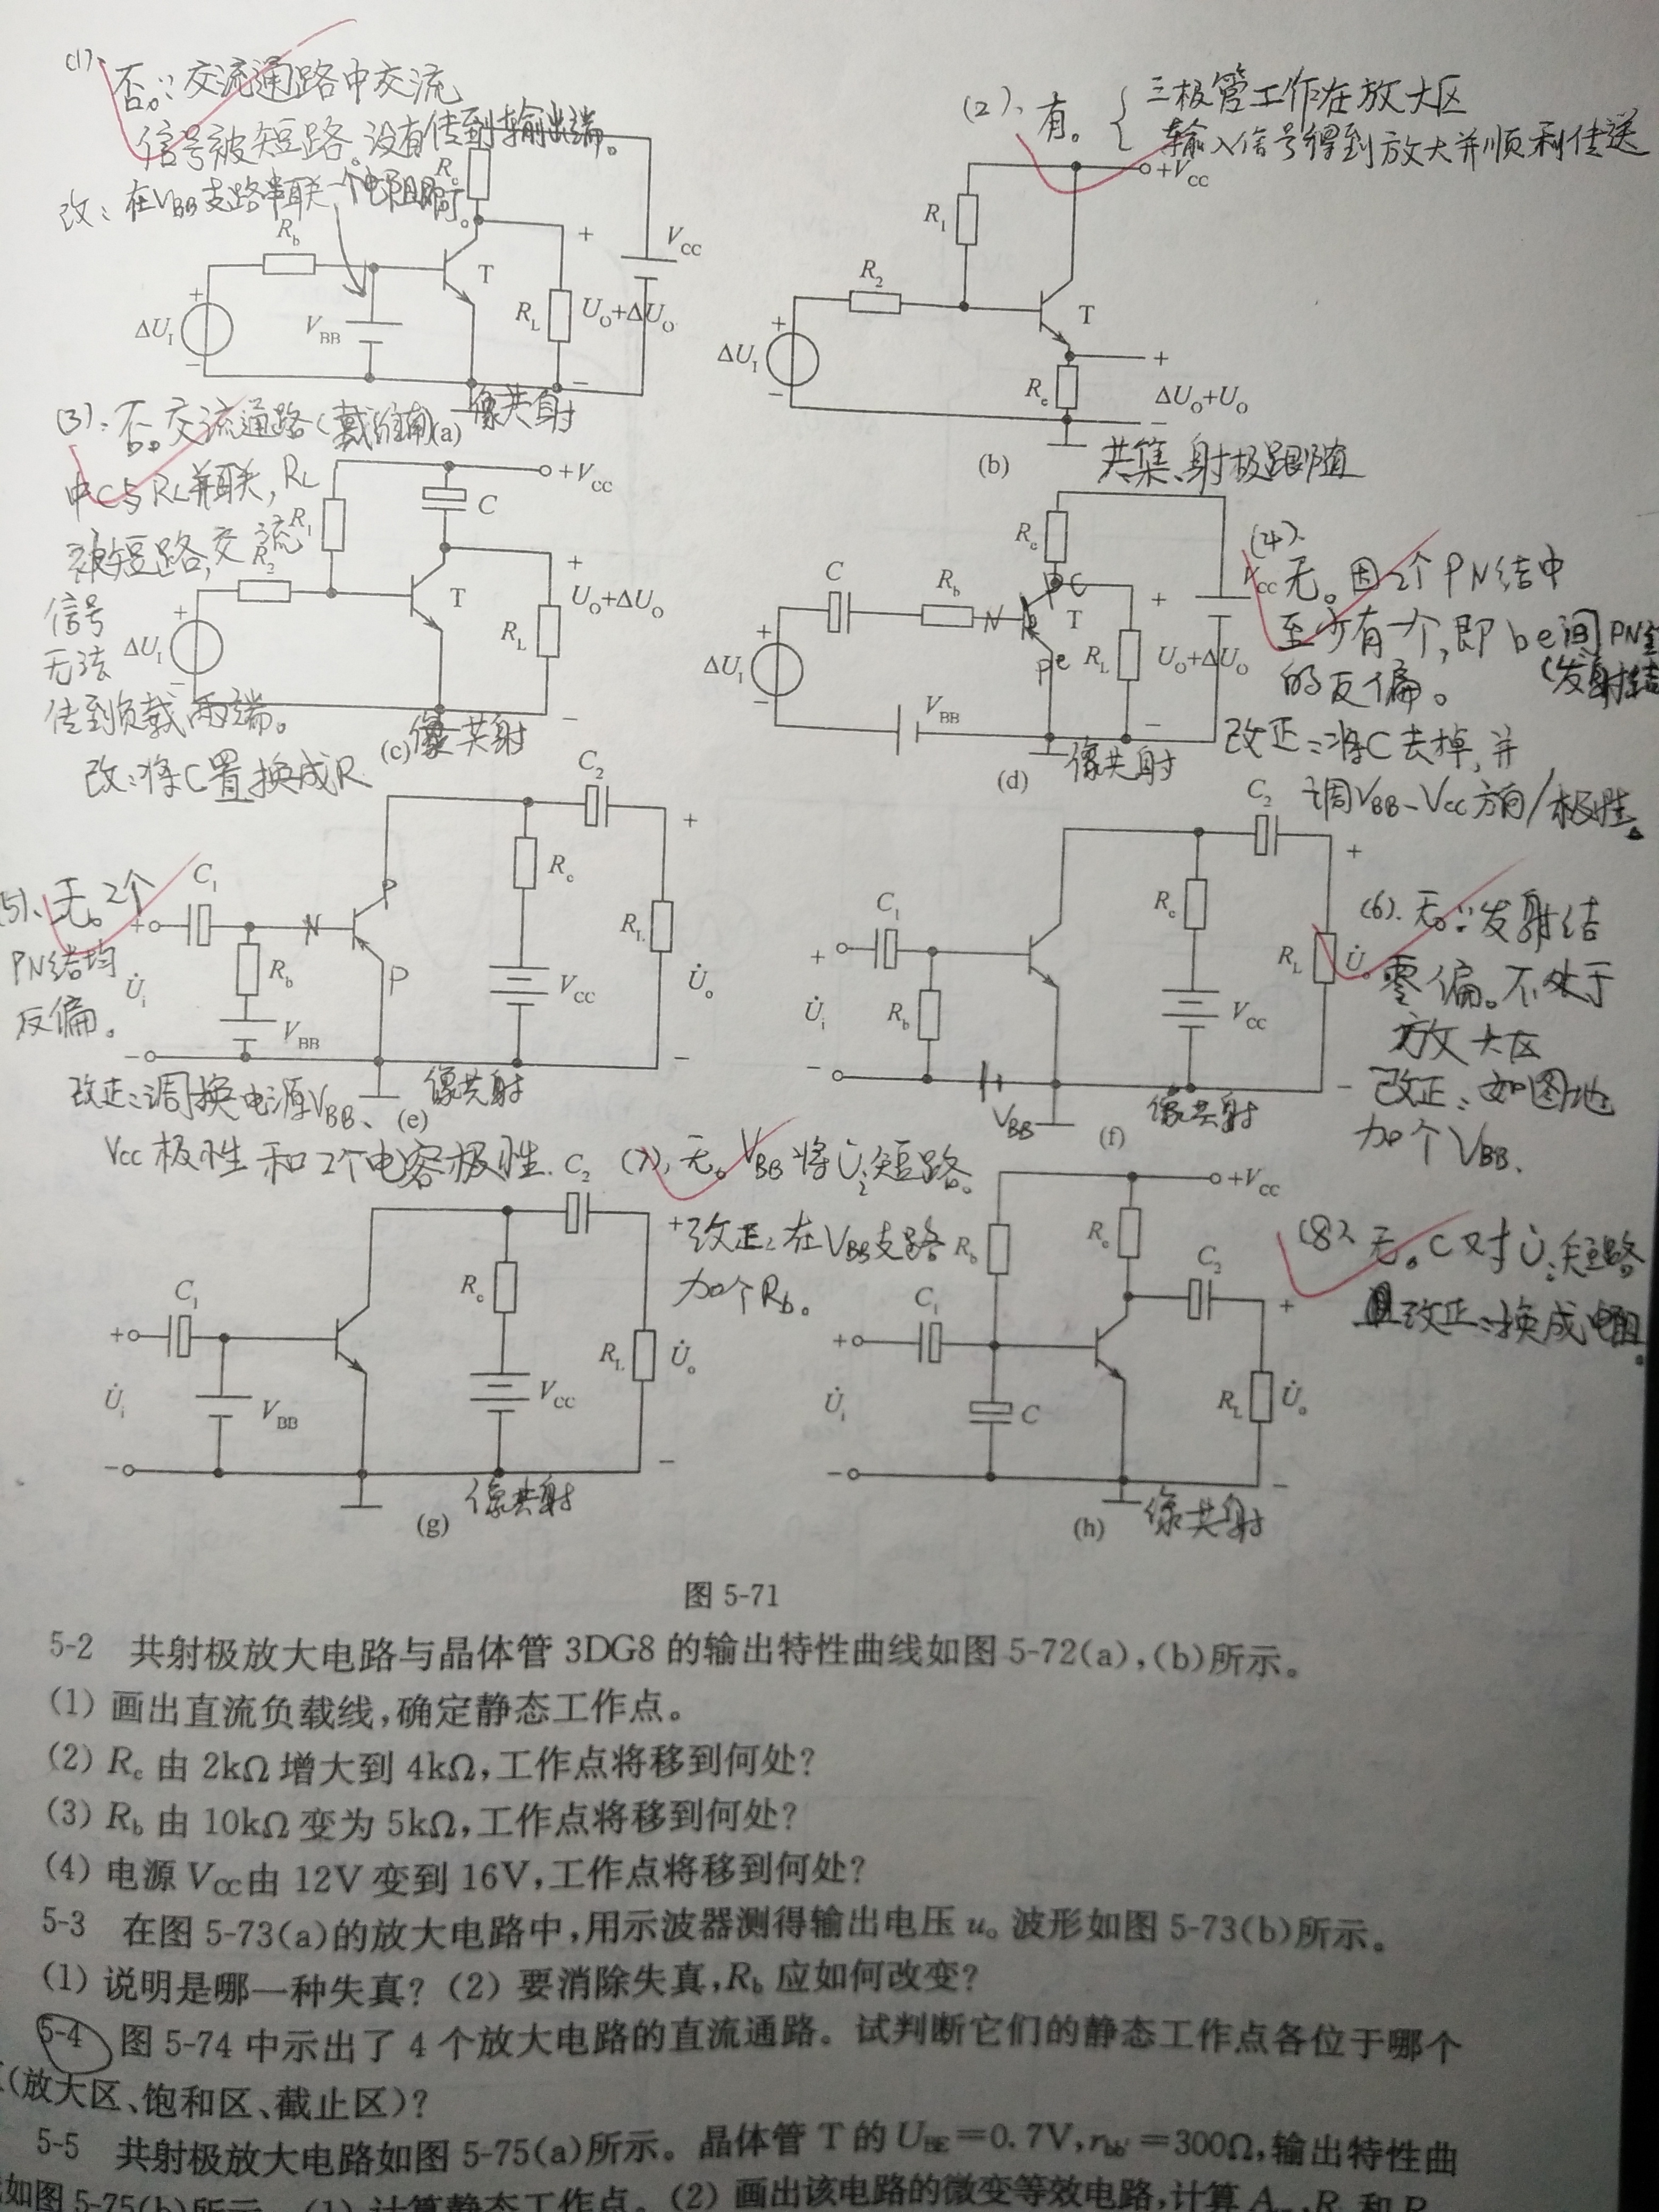 (1). 否。∵交流通路中交流
信号被短路。没有传到输出端。
改: 在VBB支路串联一个电阻即可。
Rc
Rb
T
VCC
+
ΔUI
−
VBB
RL
+
UO+ΔUO
−
(a)
像共射
(2). 有。 { 三极管工作在放大区
输入信号得到放大并顺利传送
+VCC
R1
R2
T
+
ΔUI
−
Re
+
ΔUO+UO
−
(b)
共集、射极跟随
(3). 否。交流通路(戴维南)
中C与RL并联, RL
被短路, 交流
信号
无法
传到负载两端。
改: 将C置换成R
+VCC
R1
C
R2
T
+
ΔUI
−
RL
+
UO+ΔUO
−
(c)
像共射
(4).
无。因2个PN结中
至少有一个, 即be间PN
的反偏。 (发射结
改正: 将C去掉, 并
调VBB-VCC方向/极性。
Rc
VCC
C
Rb
N
P C
T
P e
+
ΔUI
−
RL
+
UO+ΔUO
−
VBB
(d)
像共射
(5). 无。2个
PN结均
反偏。
C2
C1
P
N
P
Rc
+
RL
U̇o
−
+
U̇i
−
Rb
VBB
VCC
(e)
像共射
改正: 调换电源VBB、
VCC极性和2个电容极性.
(6). 无。∵发射结
零偏。不处于
放大区
改正: 如图地
加个VBB.
C2
C1
Rc
+
RL
U̇o
−
+
U̇i
−
Rb
VCC
VBB
(f)
像共射
(7). 无。VBB将U̇i短路。
改正: 在VBB支路
加个Rb。
C2
C1
Rc
+
RL
U̇o
−
+
U̇i
−
VBB
VCC
(g)
像共射
(8). 无。C对U̇i短路
改正: 换成电阻。
+VCC
Rb
Rc
C2
C1
+
U̇i
−
C
+
RL
U̇o
−
(h)
像共射
图 5-71
5-2 共射极放大电路与晶体管 3DG8 的输出特性曲线如图 5-72(a),(b)所示。
(1) 画出直流负载线,确定静态工作点。
(2) Rc 由 2kΩ 增大到 4kΩ,工作点将移到何处?
(3) Rb 由 10kΩ 变为 5kΩ,工作点将移到何处?
(4) 电源 VCC由 12V 变到 16V,工作点将移到何处?
5-3 在图 5-73(a)的放大电路中,用示波器测得输出电压 uo 波形如图 5-73(b)所示。
(1) 说明是哪一种失真? (2) 要消除失真,Rb 应如何改变?
5-4 图 5-74 中示出了 4 个放大电路的直流通路。试判断它们的静态工作点各位于哪个
(放大区、饱和区、截止区)?
5-5 共射极放大电路如图 5-75(a)所示。晶体管 T 的 UBE=0.7V,rbb'=300Ω,输出特性曲
如图 5-75(b)所示。(1) 计算静态工作点。(2) 画出该电路的微变等效电路,计算